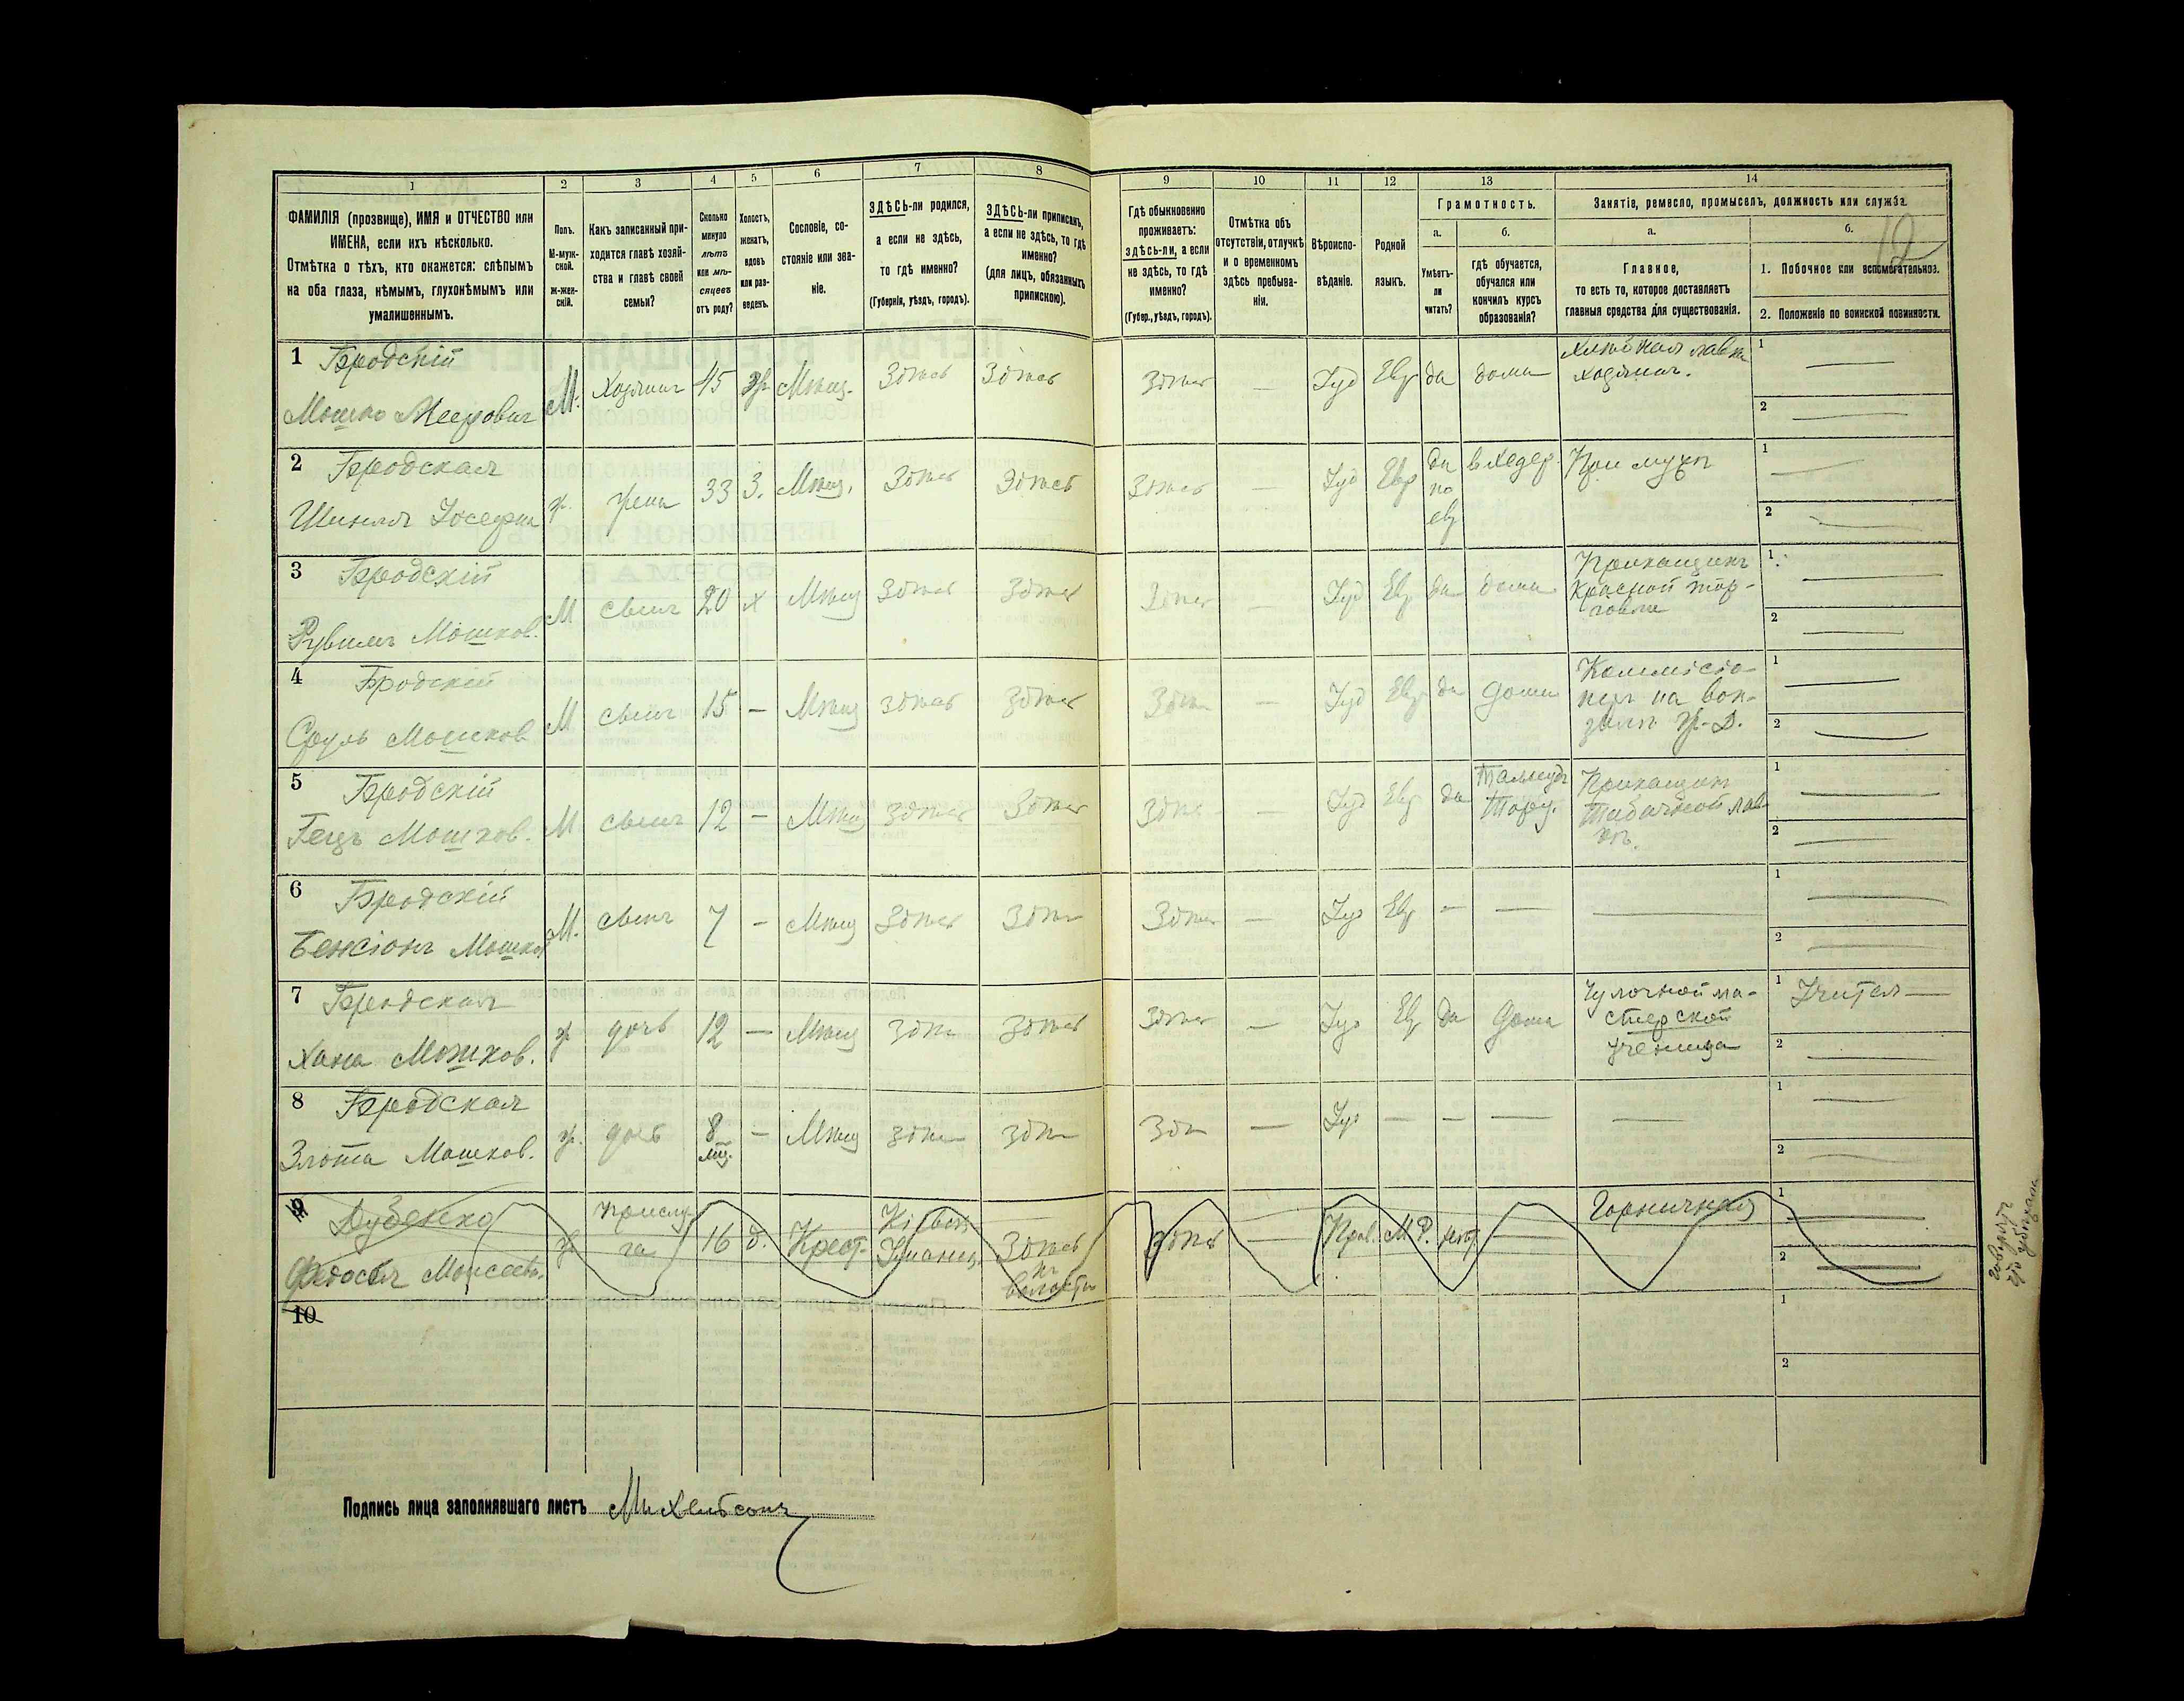 12
1
ФАМИЛІЯ (прозвище), ИМЯ и ОТЧЕСТВО или
ИМЕНА, если ихъ нѣсколько.
Отмѣтка о тѣхъ, кто окажется: слѣпымъ
на оба глаза, нѣмымъ, глухонѣмымъ или
умалишеннымъ.
2
Полъ.
М-муж-
ской.
ж-жен-
скій.
3
Какъ записанный при-
ходится главѣ хозяй-
ства и главѣ своей
семьи?
4
Сколько
минуло
лѣтъ
или мѣ-
сяцевъ
отъ роду?
5
Холостъ,
женатъ,
вдовъ
или раз-
веденъ.
6
Сословіе, со-
стояніе или зва-
ніе.
7
ЗДѢСЬ-ли родился,
а если не здѣсь,
то гдѣ именно?
(Губернія, уѣздъ, городъ).
8
ЗДѢСЬ-ли приписанъ,
а если не здѣсь, то гдѣ
именно?
(для лицъ, обязанныхъ
припискою).
9
Гдѣ обыкновенно
проживаетъ:
здѣсь-ли, а если
не здѣсь, то гдѣ
именно?
(Губер., уѣздъ, городъ).
10
Отмѣтка объ
отсутствіи, отлучкѣ
и о временномъ
здѣсь пребыва-
ніи.
11
Вѣроиспо-
вѣданіе.
12
Родной
языкъ.
13
Грамотность.
а.
Умѣетъ-
ли
читать?
б.
гдѣ обучается,
обучался или
кончилъ курсъ
образованія?
14
Занятіе, ремесло, промыселъ, должность или служба.
а.
Главное,
то есть то, которое доставляетъ
главныя средства для существованія.
б.
1. Побочное или вспомогательное.
2. Положеніе по воинской повинности.
1 Бродскій
Мошко Меерович М. Хозяинъ 45 ж. Мѣщ. Здѣсь Здѣсь Здѣсь — Іуд Евр да дома
хозяинъ.
1 —
2 —
2 Бродская
Іосефна ж. жена 33 З. Мѣщ. Здѣсь Здѣсь Здѣсь — Іуд Евр да
по
евр
в хедер. При мужѣ
1 —
2 —
3 Бродскій
Рувимъ Мошков. М сынъ 20 х Мѣщ Здѣсь Здѣсь Здѣсь — Іуд Евр да дома Прикащикъ
красной тор-
говли
1 —
2 —
4 Бродскій
Сруль Мошков М сынъ 15 — Мѣщ здѣсь здѣсь Здѣсь — Іуд Евр да дома Коммисіо-
неръ на вок-
залѣ ж.-д.
1 —
2 —
5 Бродскій
Гецъ Мошков. М сынъ 12 — Мѣщ здѣсь Здѣсь Здѣсь — Іуд Евр да Талмудъ
Тору.
Прикащикъ
табачной лав
кѣ.
1 —
2 —
6 Бродскій
Бенсіонъ Мошков М. сынъ 7 — Мѣщ Здѣсь Здѣсь Здѣсь — Іуд Евр — — —
1 —
2 —
7 Бродская
Хана Мошков. ж дочь 12 — Мѣщ здѣсь здѣсь здѣсь — Іуд Евр да дома Чулочной ма-
стерской
ученица
1
2 —
8 Бродская
Злота Мошков. ж. дочь 8
мц.
— Мѣщ здѣсь здѣсь Здѣсь — Іуд — — — —
1 —
2 —
9 Дубенко
Моисеев. ж прислу-
га
16 д. Крест. Кіевск.
Уманск.
Здѣсь
въ
волости
здѣсь — Прав. М.Р. — Горничная
1 —
2 —
10
1
2
говорятъ
что
убѣжала
Подпись лица заполнявшаго листъ Михельсонъ